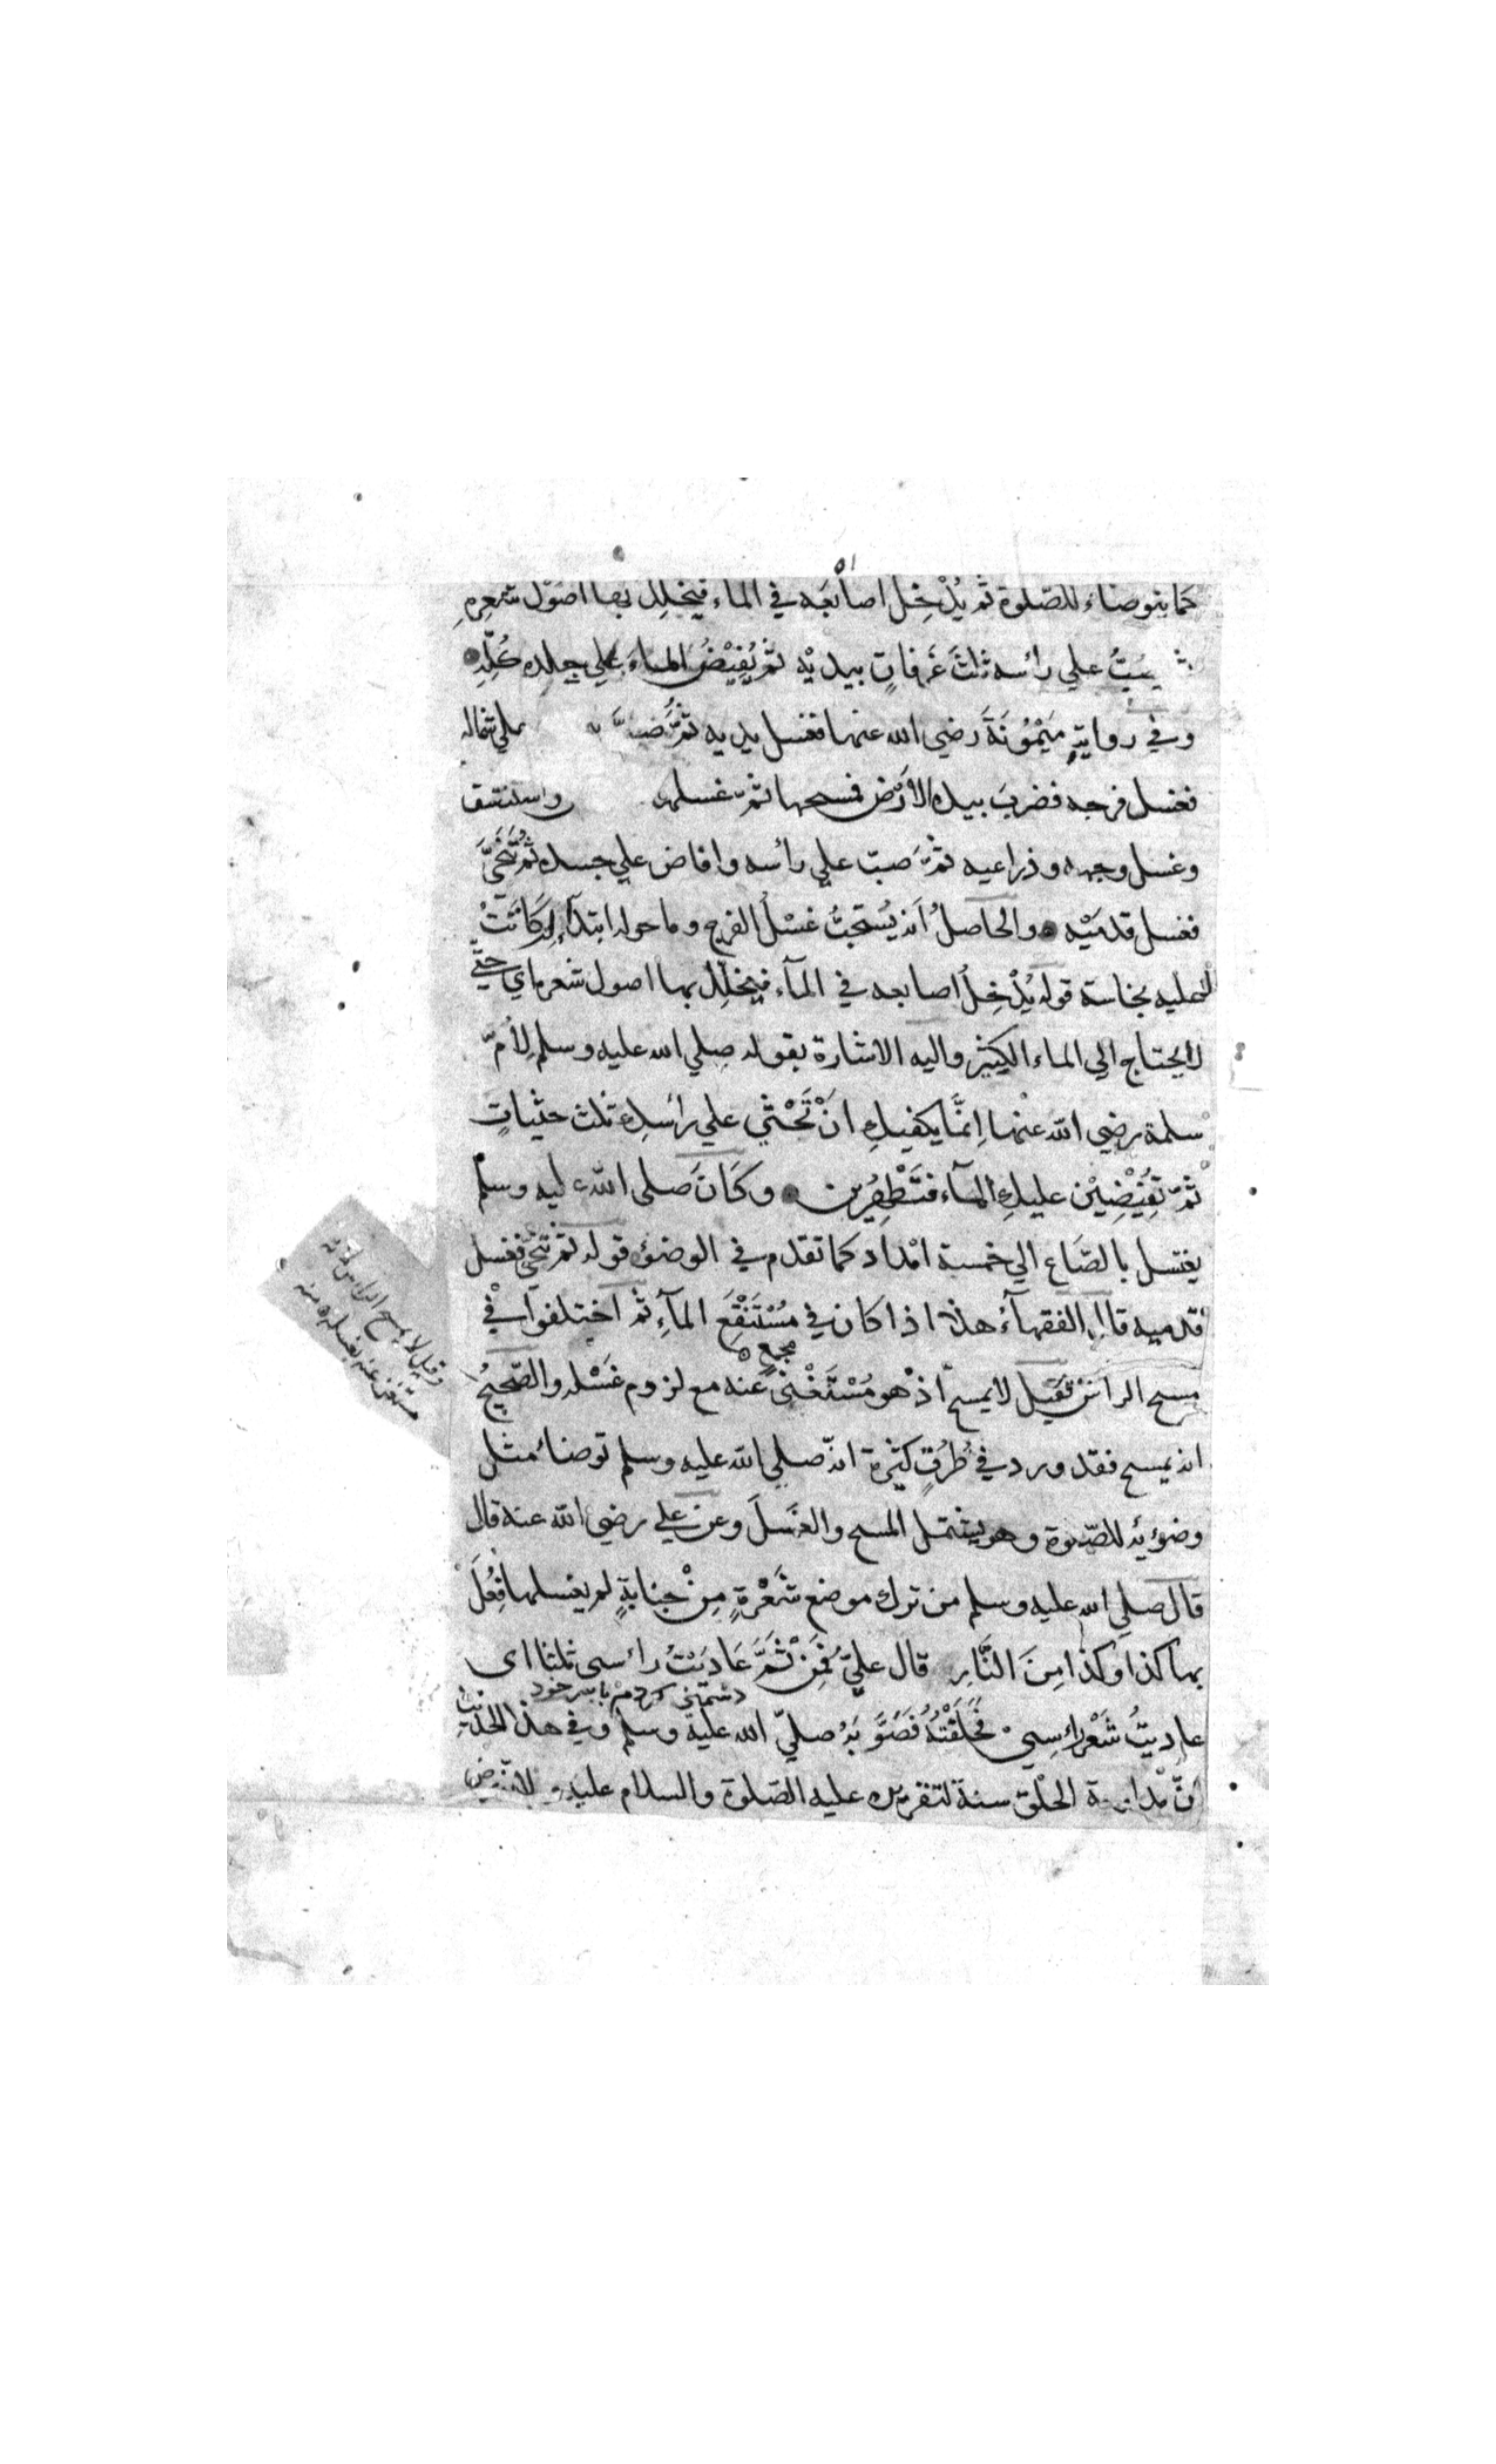 ٥١
كما يتوضاء للصلوة ثم يُدْخِلُ اصابعَه في الماء فيخلِلُ بها اصُوْل شعرِهِ
يصُبُّ علي رائسه ثلثَ غرفاتٍ بيديْه ثم يُفِيْضُ الماءَ علي جلده كُلِّهِ
وفي روايةِ مَيْمُوْنَةَ رضي الله عنها فغسل يديه ثمَّ صبَّ علي شماله
فغسل فرجه فضربَ بيده الاَرْض فمسحها ثمّ غسلها واستنشق
وغسل وجهه وذراعيه ثمَّ صبّ علي رائسه وافاض علي جسده ثُمَّ تَنَحَّيَ
فغسل قدمَيْه والحاصلُ اَنه يُستحبُّ غَسْلُ الفرج وما حوله ابتدآء ان كانَتْ
عليه نجاسة قوله يُدْخِلُ اصابعه في المآء فيخلِّلُ بها اصول شعره اي حتّي
لا يحتاج الي الماء الكثير واليه الاشارة بقوله صلي الله عليه وسلم لِاُمِّ
سلمة رضي الله عنْها اِنمَّا يكفيكِ انْ تَحْثي علي رائسكِ ثلث حثياتٍ
ثمّ تُفِيْضِيْن عليكِ المآء فتَطْهُرِين وكَانَ صلي الله عليه وسلم
يغتسل بالصَاع الي خمسة امْداد كما تقدم في الوضوء قوله ثم تنحّي فغسل
قدميه قال الفقهآءُ هذا اذا كان في مُسْتَنْقَعِ المآءِ ثم اختلفوا في
مجمع
مسح الرائس فقيل لا يمسح اذْ هو مُسْتَغْني عنه مع لزوم غَسْله والصّحيحُ
انه يمسح فقد ورد في طُرُقٍ كثيرة انّه صلي الله عليه وسلم توضاء مثل
وضوئه للصّلوة وهو يشتمل المسح والغَسلَ وعن علي رضي الله عنه قال
قال صلي الله عليه وسلم من ترك موضع شَعْرةٍ مِنْ جنابةٍ لم يغسلها فُعِلَ
بها كذا وكذا مِنَ النَّارِ قال عليّ فَمِنْ ثَمَّ عَادَيْتُ رائسي ثلثا اي
دشمني كردم باسر خود
عاديتُ شَعْر رائسِي فحَلَقْتُهُ فصَوَّبَهُ صلي الله عليه وسلم وفي هذا الحديث
انّ مداومة الحَلْق سنة لتقريره عليه الصَلوة والسلام عليه
وقيل لا يمسح الراس لانه
مستغن عنه بغسله منه